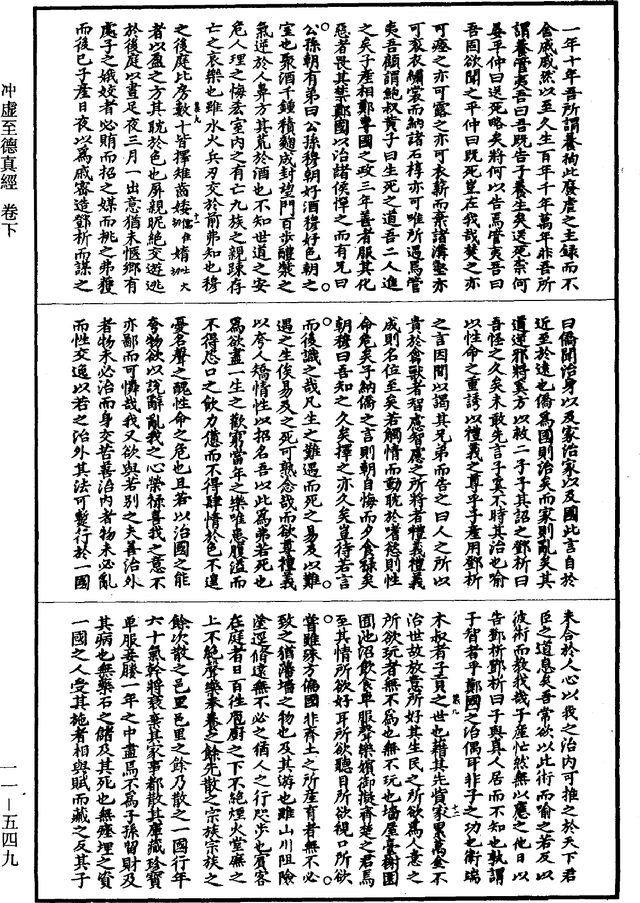 冲虛至德真經 卷下
一年十年吾所謂養拘此廢虐之主録而不
舍戚戚然以至久生百年千年萬年非吾所
謂養管夷吾曰吾既告子養生矣送死柰何
晏平仲曰送死略矣將何以告焉管夷吾曰
吾固欲聞之平仲曰既死豈在我哉焚之亦
可瘞之亦可露之亦可衣薪而棄諸溝壑亦
可衮衣繡裳而納諸石槨亦可唯所遇焉管
夷吾顧謂鮑叔黄子曰生死之道吾二人進
之矣子產相鄭專國之政三年善者服其化
惡者畏其禁鄭國以治諸侯憚之而有兄曰
公孫朝有弟曰公孫穆朝好酒穆好色朝之
室也聚酒千鍾積麴成封望門百步醩漿之
氣逆於人鼻方其荒於酒也不知世道之安
危人理之悔吝室內之有亡九族之親踈存
亡之哀樂也雖水火兵刃交於前弗知也穆
之後庭比房數十皆擇稚齒婑媠
者以盈之方其耽於色也屏親昵絕交遊逃
於後庭以晝足夜三月一出意猶未愜鄉有
處子之娥姣者必賄而招之媒而挑之弗獲
而後已子產日夜以爲戚密造鄧析而謀之
曰僑聞治身以及家治家以及國此言自於
近至於遠也僑爲國則治矣而家則亂矣其
道逆邪將奚方以救二子子其詔之鄧析曰
吾怪之久矣未敢先言子奚不時其治也喻
以性命之重誘以禮義之尊乎子產用鄧析
之言因間以謁其兄弟而告之曰人之所以
貴於禽獸者智慮智慮之所將者禮義禮義
成則名位至矣若觸情而動耽於嗜慾則性
命危矣子納僑之言則朝自悔而夕食祿矣
朝穆曰吾知之久矣擇之亦久矣豈待若言
而後識之哉凡生之難遇而死之易及以難
遇之生俟易及之死可熟念哉而欲尊禮義
以夸人矯情性以招名吾以此爲弗若死也
爲欲盡一生之歡窮當年之樂唯患腹溢而
不得恣口之飲力憊而不得肆情於色不遑
憂名聲之醜性命之危也且若以治國之能
夸物欲以說辭亂我之心榮祿喜我之意不
亦鄙而可憐哉我又欲與若別之夫善治外
者物未必治而身交苦善治內者物未必亂
而性交逸以若之治外其法可蹔行於一國
未合於人心以我之治內可推之於天下君
臣之道息矣吾常欲以此術而喻之若反以
彼術而教我哉子產忙然無以應之他日以
告鄧析鄧析曰子與真人居而不知也孰謂
子智者乎鄭國之治偶耳非子之功也衛端
木叔者子貢之世也藉其先貲家累萬金不
治世故放意所好其生民之所欲爲人意之
所欲玩者無不爲也無不玩也墻屋臺榭園
囿池沼飲食車服聲樂嬪御擬齊楚之君焉
至其情所欲好耳所欲聽目所欲視口所欲
嘗雖殊方偏國非齊土之所產育者無不必
致之猶藩墻之物也及其游也雖山川阻險
塗逕脩遠無不必之猶人之行咫步也賓客
在庭者日百往庖廚之下不絕煙火堂廡之
上不絕聲樂奉養之餘先散之宗族宗族之
餘次散之邑里邑里之餘乃散之一國行年
六十氣幹將衰棄其家事都散其庫藏珍寶
車服妾媵一年之中盡焉不爲子孫留財及
其病也無藥石之儲及其死也無瘞埋之資
一國之人受其施者相與賦而藏之反其子
一一－五四九